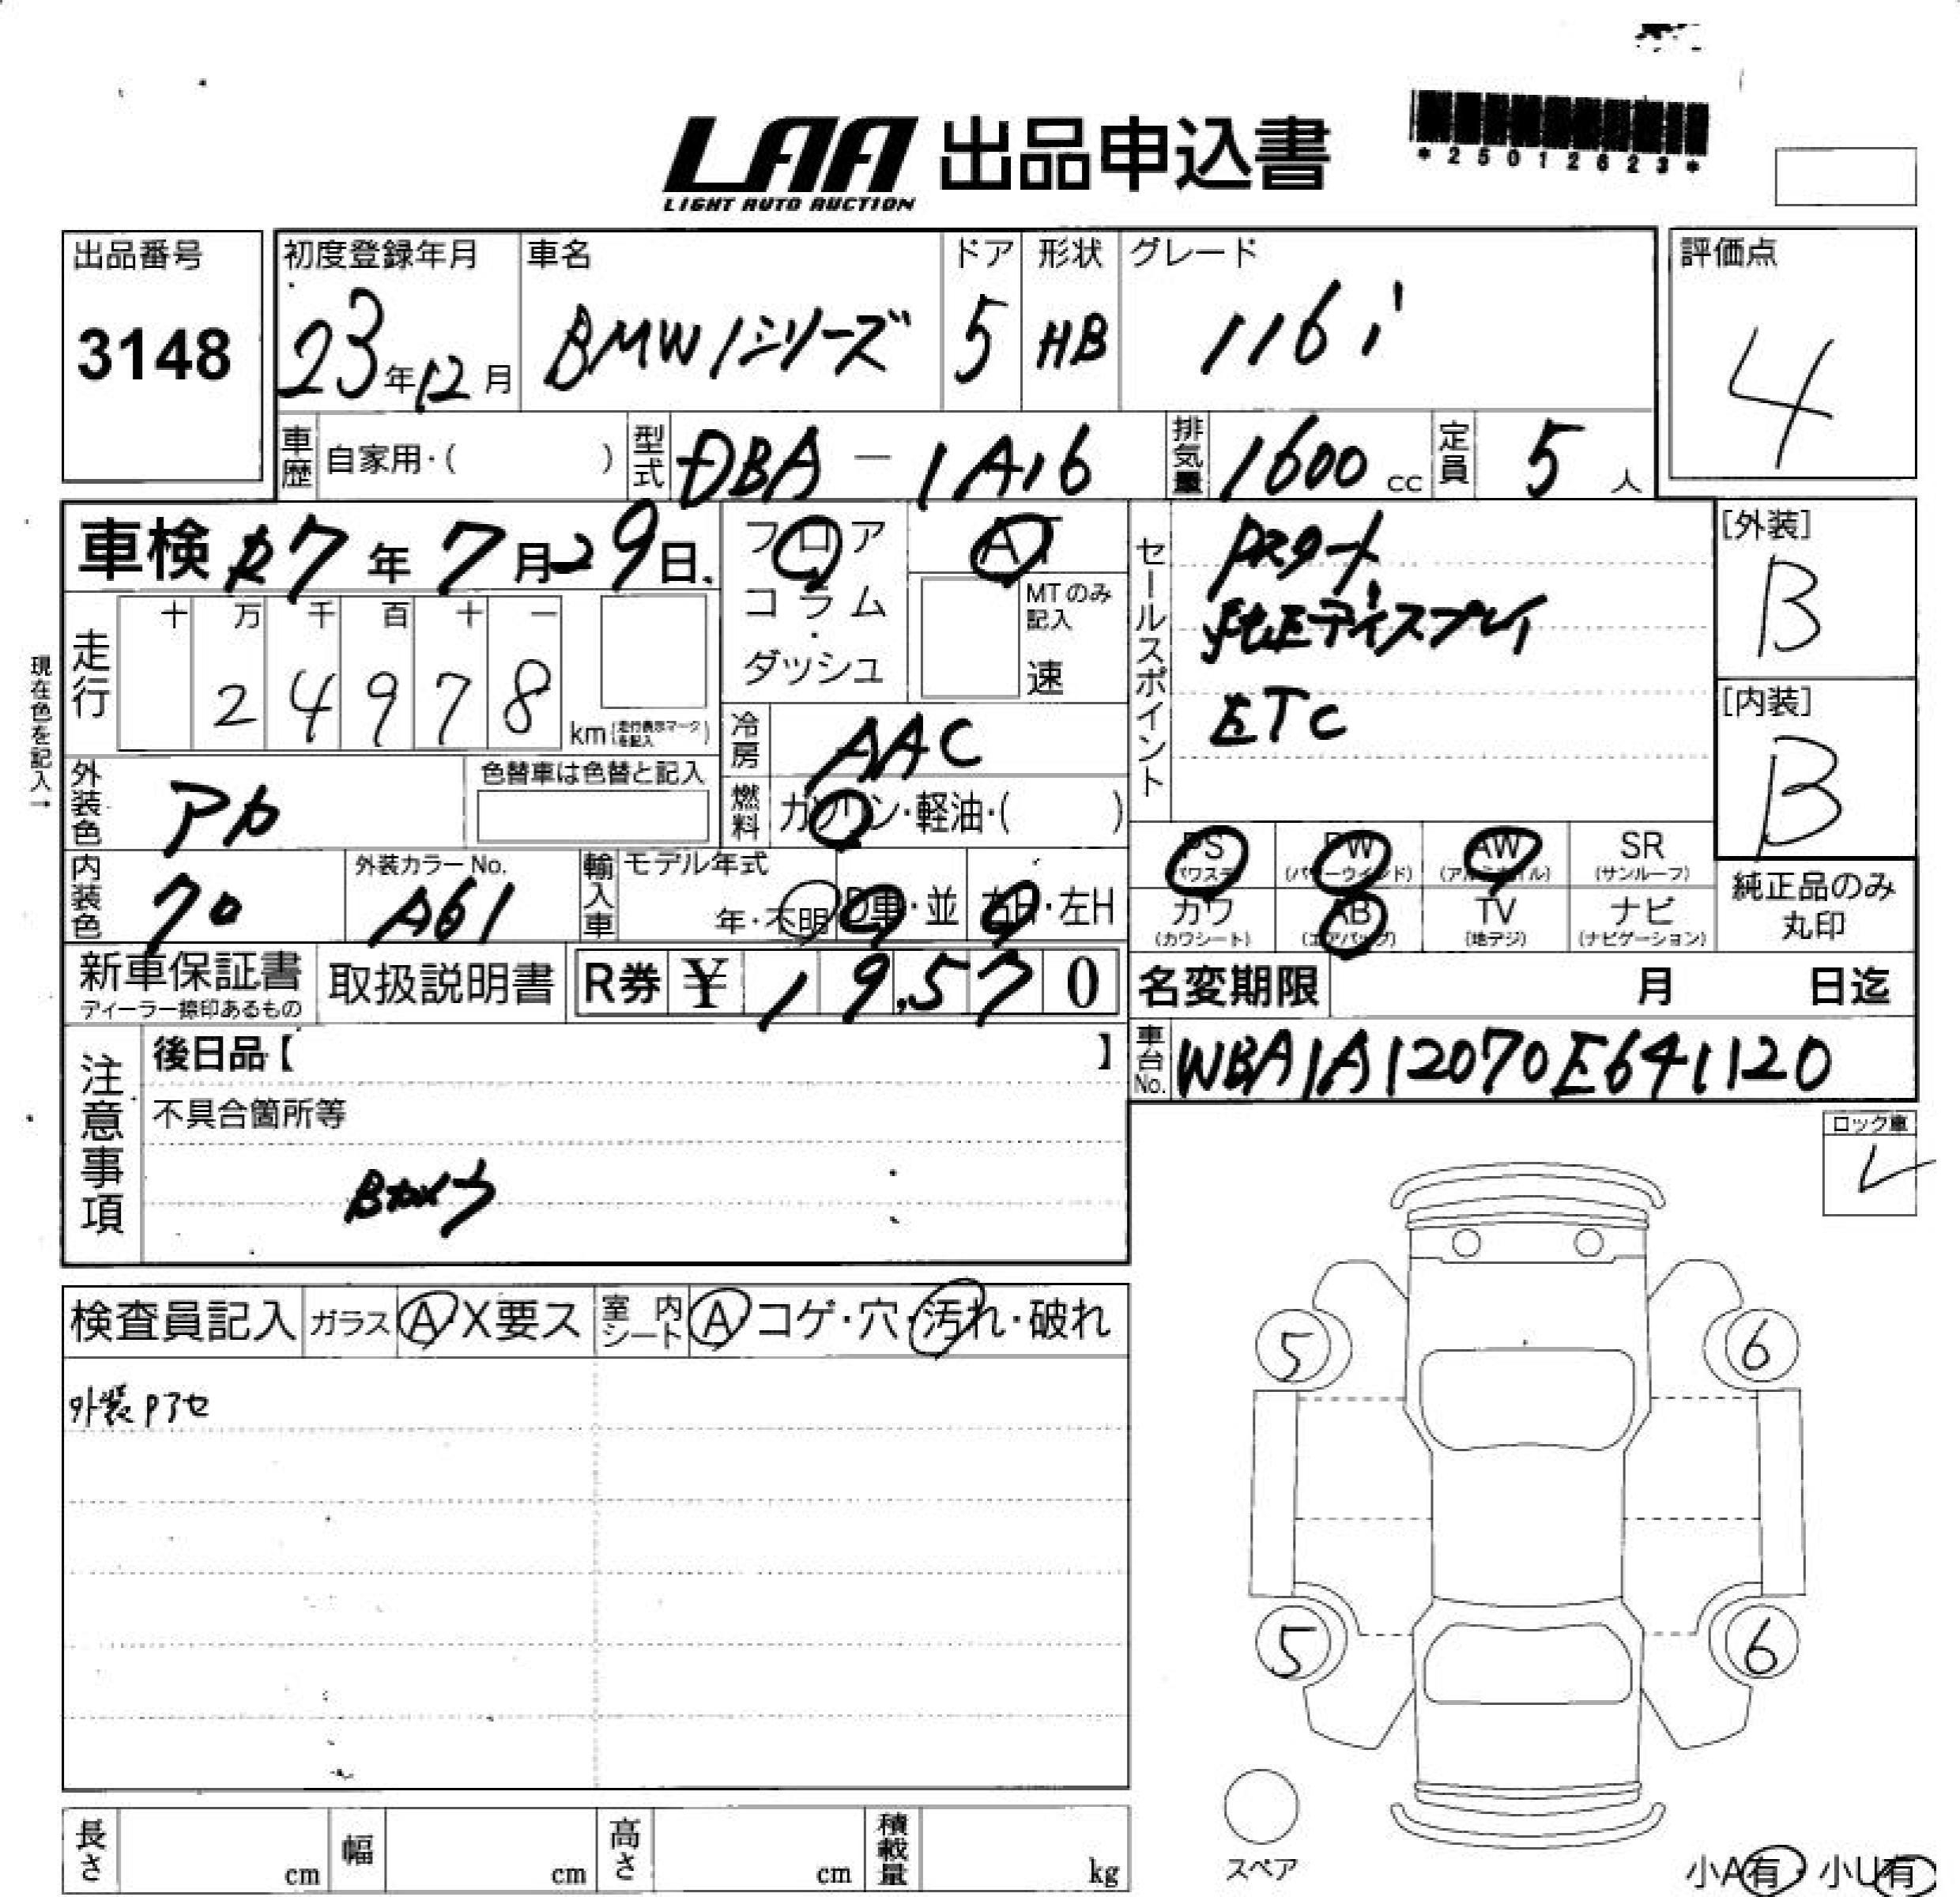 LAA 出品申込書
LIGHT AUTO AUCTION
*25012623*
出品番号
3148
初度登録年月
23年12月
車名
BMW1シリーズ
ドア
5
形状
HB
グレード
116i
評価点
4
車歴 自家用・( )
型式 DBA-1A16
排気量 1600cc
定員 5人
車検 R7年7月29日
フロア
コラム
・
ダッシュ
AT
MTのみ記入
速
セールスポイント
Pスタート
純正ディスプレイ
ETC
[外装]
B
[内装]
B
現在色を記入→
走行
十 万 千 百 十 一
2 4 9 7 8
km(走行表示マークを記入)
冷房 AAC
燃料 ガソリン・軽油・( )
外装色 アカ
色替車は色替と記入
内装色 クロ
外装カラーNo.
A61
輸入車 モデル年式
年・不明 D車・並 右H・左H
PS (パワステ)
PW (パワーウインド)
AW (アルミホイル)
SR (サンルーフ)
カワ (カワシート)
AB (エアバッグ)
TV (地デジ)
ナビ (ナビゲーション)
純正品のみ
丸印
新車保証書
ディーラー捺印あるもの
取扱説明書
R券 ¥ 19,570
名変期限 月 日迄
車台No. WBA1A12070E641120
注意事項
後日品【 】
不具合箇所等
Bカメラ
ロック車
レ
検査員記入 ガラス A X要ス 室内シート A コゲ・穴・汚れ・破れ
外装Pアセ
5 6
5 6
スペア
長さ cm 幅 cm 高さ cm 積載量 kg
小A有・小U有